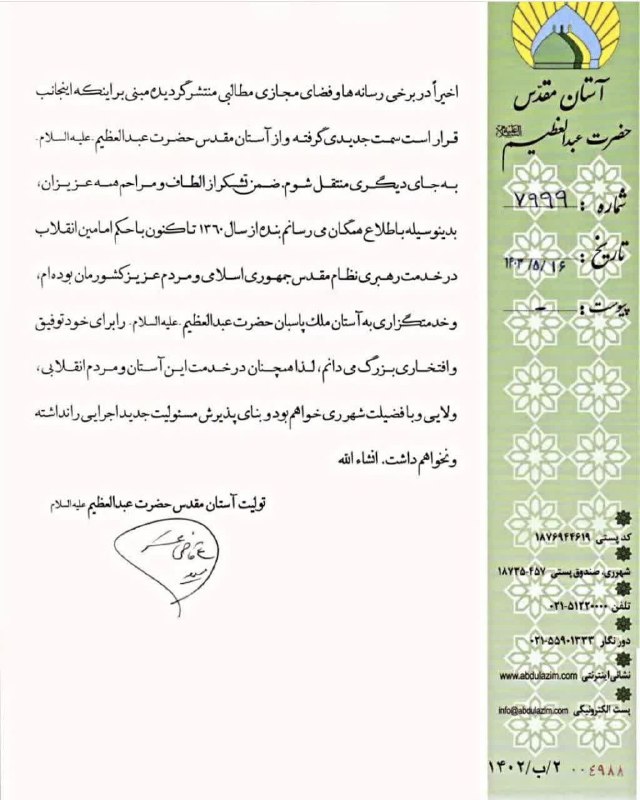 آستان مقدّس
حضرت عبدالعظیم علیه‌السلام
شماره : ۷۹۹۹
تاریخ : ۱۴۰۳/۵/۱۶
پیوست : -
اخیراً در برخی رسانه ها و فضای مجازی مطالبی منتشر گردیده مبنی بر اینکه اینجانب
قرار است سمت جدیدی گرفته و از آستان مقدس حضرت عبدالعظیم علیه‌السلام
به جای دیگری منتقل شوم. ضمن تشکر از الطاف و مراحم همه عزیزان،
بدینوسیله باطلاع همگان می رسانم بنده از سال ۱۳۶۰ تاکنون با حکم امامین انقلاب
در خدمت رهبری نظام مقدس جمهوری اسلامی و مردم عزیز کشورمان بوده ام،
و خدمتگزاری به آستان ملک پاسبان حضرت عبدالعظیم علیه‌السلام را برای خود توفیق
و افتخاری بزرگ می دانم، لذا همچنان در خدمت این آستان و مردم انقلابی،
ولایی و با فضیلت شهرری خواهم بود و بنای پذیرش مسئولیت جدید اجرایی را نداشته
و نخواهم داشت. انشاء الله
تولیت آستان مقدس حضرت عبدالعظیم علیه‌السلام
کد پستی ۱۸۷۶۹۴۴۶۱۹
شهرری، صندوق پستی ۴۵۷-۱۸۷۳۵
تلفن ۵۱۲۲۰۰۰۰-۰۲۱
دورنگار ۵۵۹۰۱۳۳۳-۰۲۱
نشانی اینترنتی www.abdulazim.com
پست الکترونیکی info@abdulazim.com
۰۰۴۹۸۸ ۲/ب/۱۴۰۲